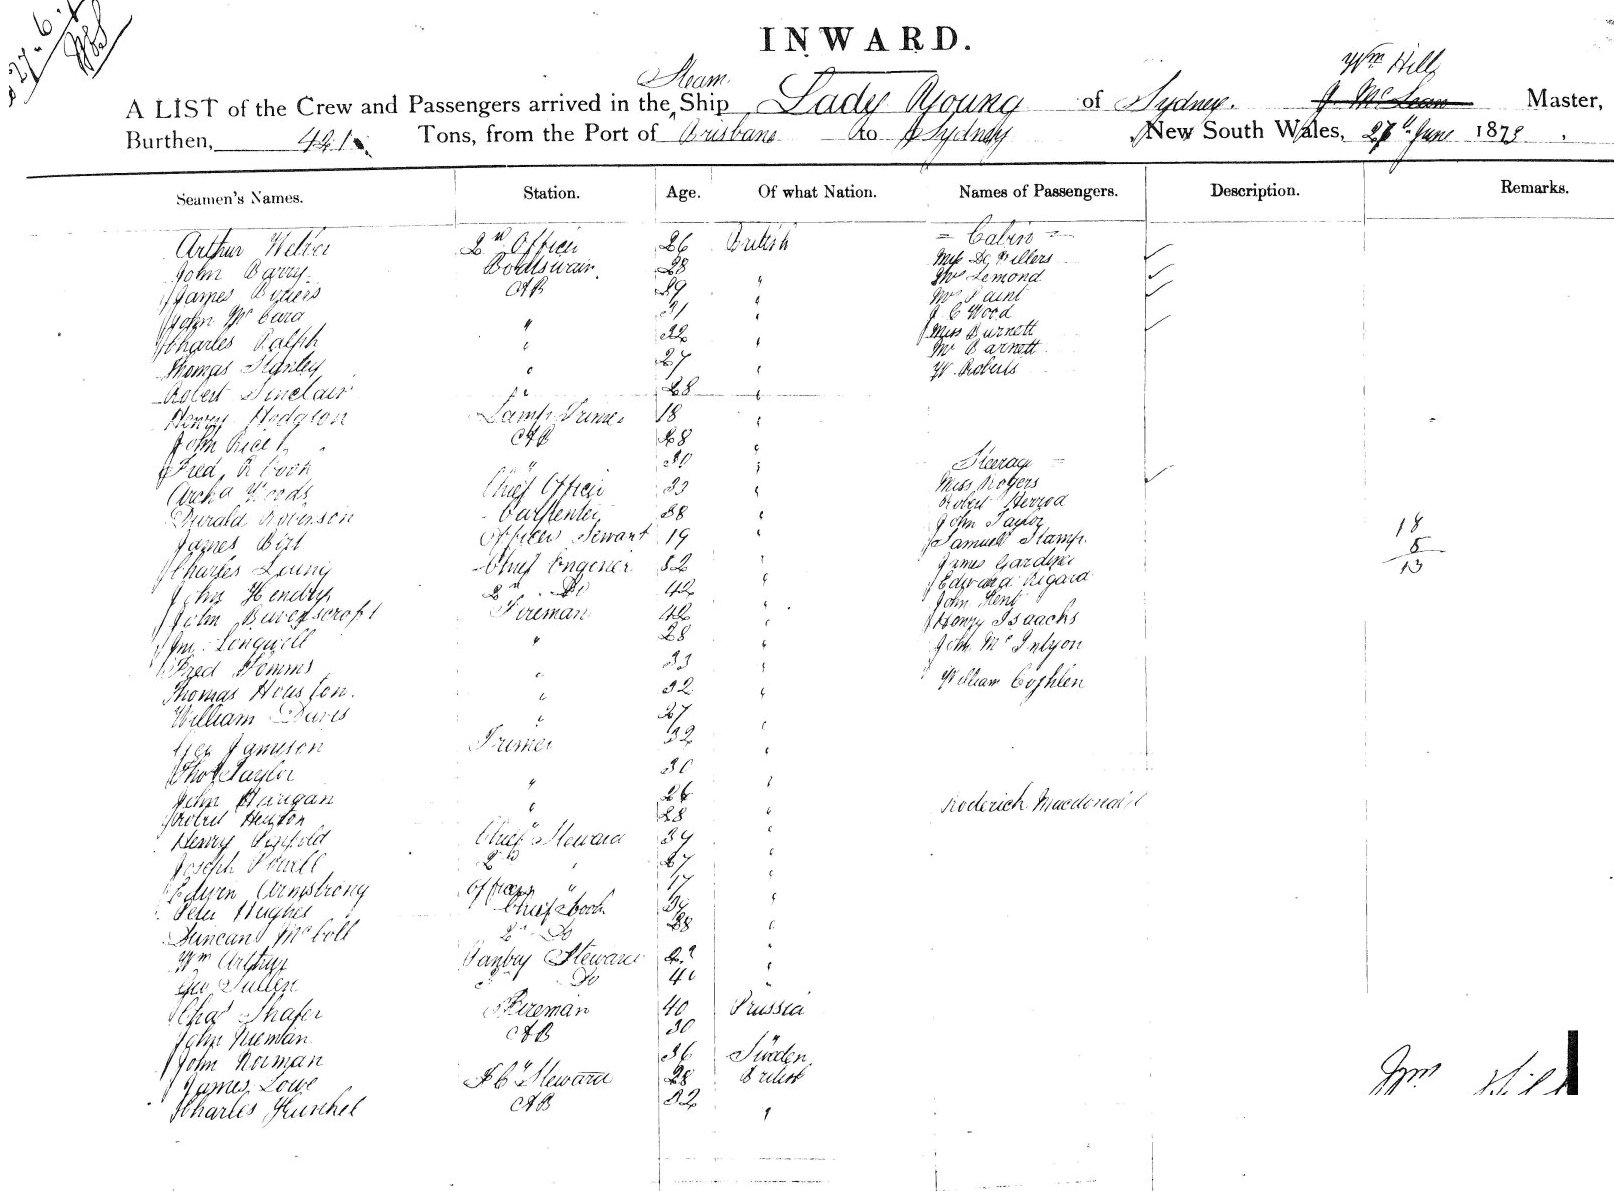 27.6.
INWARD.
Steam Wm Hill
A LIST of the Crew and Passengers arrived in the Ship Lady Young of Sydney. J McLean Master,
Burthen, 421 Tons, from the Port of Brisbane to Sydney New South Wales, 27th June 1873,
Seamen's Names. Station. Age. Of what Nation. Names of Passengers. Description. Remarks.
Arthur 2nd Officer 26 British = Cabin =
John Barry Boatswain 28 " De Villers
James AB 29 " Mrs Lemond
John McCara 31 " Mr Saint
J C Wood
Charles Ralph " 22 " Miss Burnett
Thomas Stanley " 27 " Mr Barnett
W. Roberts
Robert Sinclair " 28 "
Henry Hodgson Lamp Trimer 18 "
John AB 28 "
Fred R Cook " 30 " Steerage =
Archd Woods Chief Officer 33 " Miss Rogers
Robert Herrod
Durald Robinson Carpenter 38 " John Taylor
James Birt Officers Stewart 19 " Samuell Stamp. 18
Charles Chief Engener 52 " James Gardner 5
John Hendrys 2nd Do 42 " Edward Rigard 13
John Kent
John Fireman 42 " Henry Isaachs
Jno. Longwell " 28 " John McInlyon
Fred Timms " 33 "
Thomas Houston. " 32 " William Coghlen
William Davis " 27 "
Geo Jameson Trimer 32 "
Thos Taylor 30
John Harigan " 26 " Roderick Macdonald
Robert " 28 "
Henry Penfold Chief Steward 39 "
Joseph Powell 2nd " 27 "
Edwin Armstrong Officers " 17 "
Peter Hughes Chief Cook 39 "
Duncan McColl 2nd Do 28 "
Wm Arthur Pantry Steward "
Geo Pullen Do 40 "
Chas Shafer Fireman 40 Prussia
John Nieman AB 30 "
John Norman 36 Sweden
James Lowe F.C. Steward 28 British
Charles Kunkel AB 32 "
Wm Hill